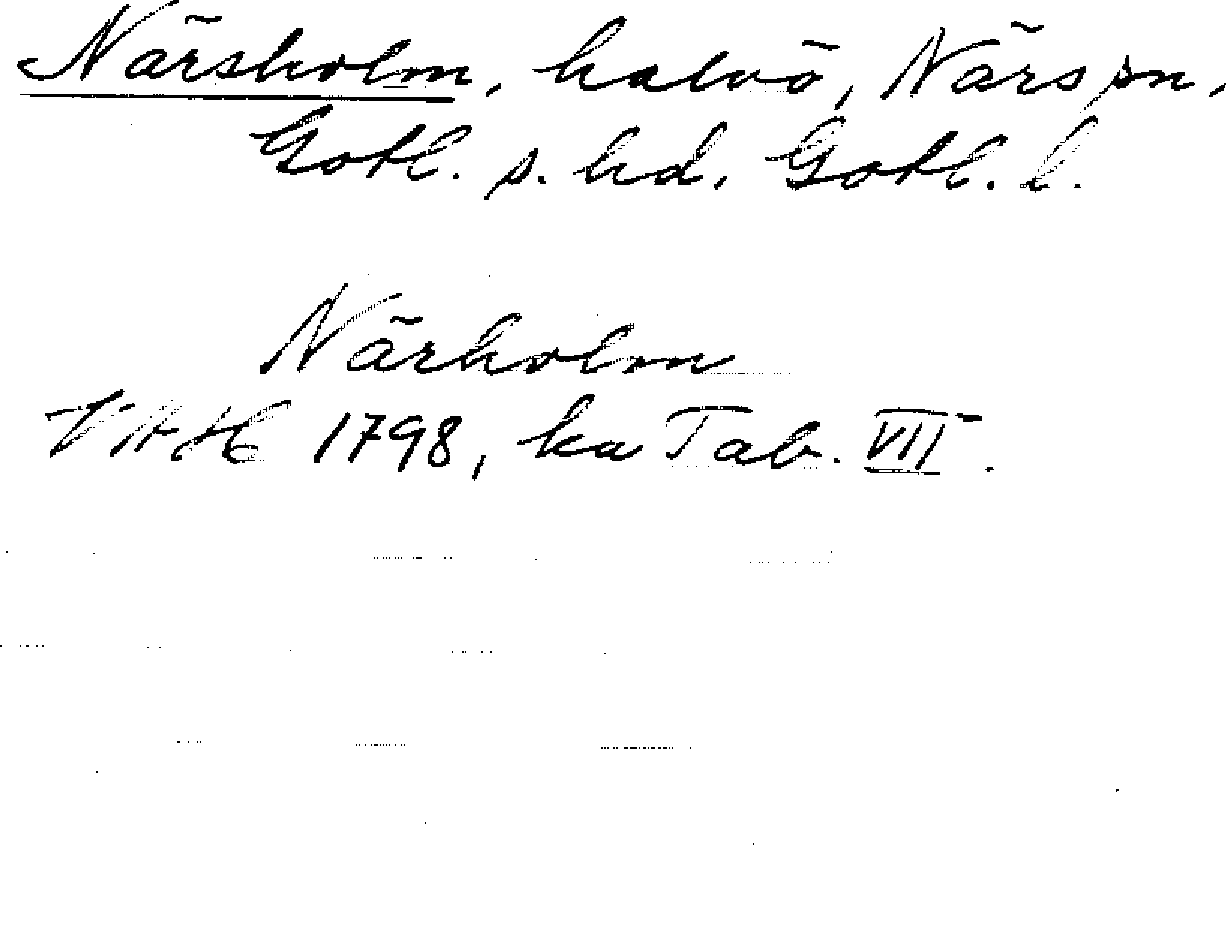 Närsholm, halvö, Närs sn,
Gotl. s. hd. Gotl. l.
Närholm
VAH 1798, ka Tab. VII.